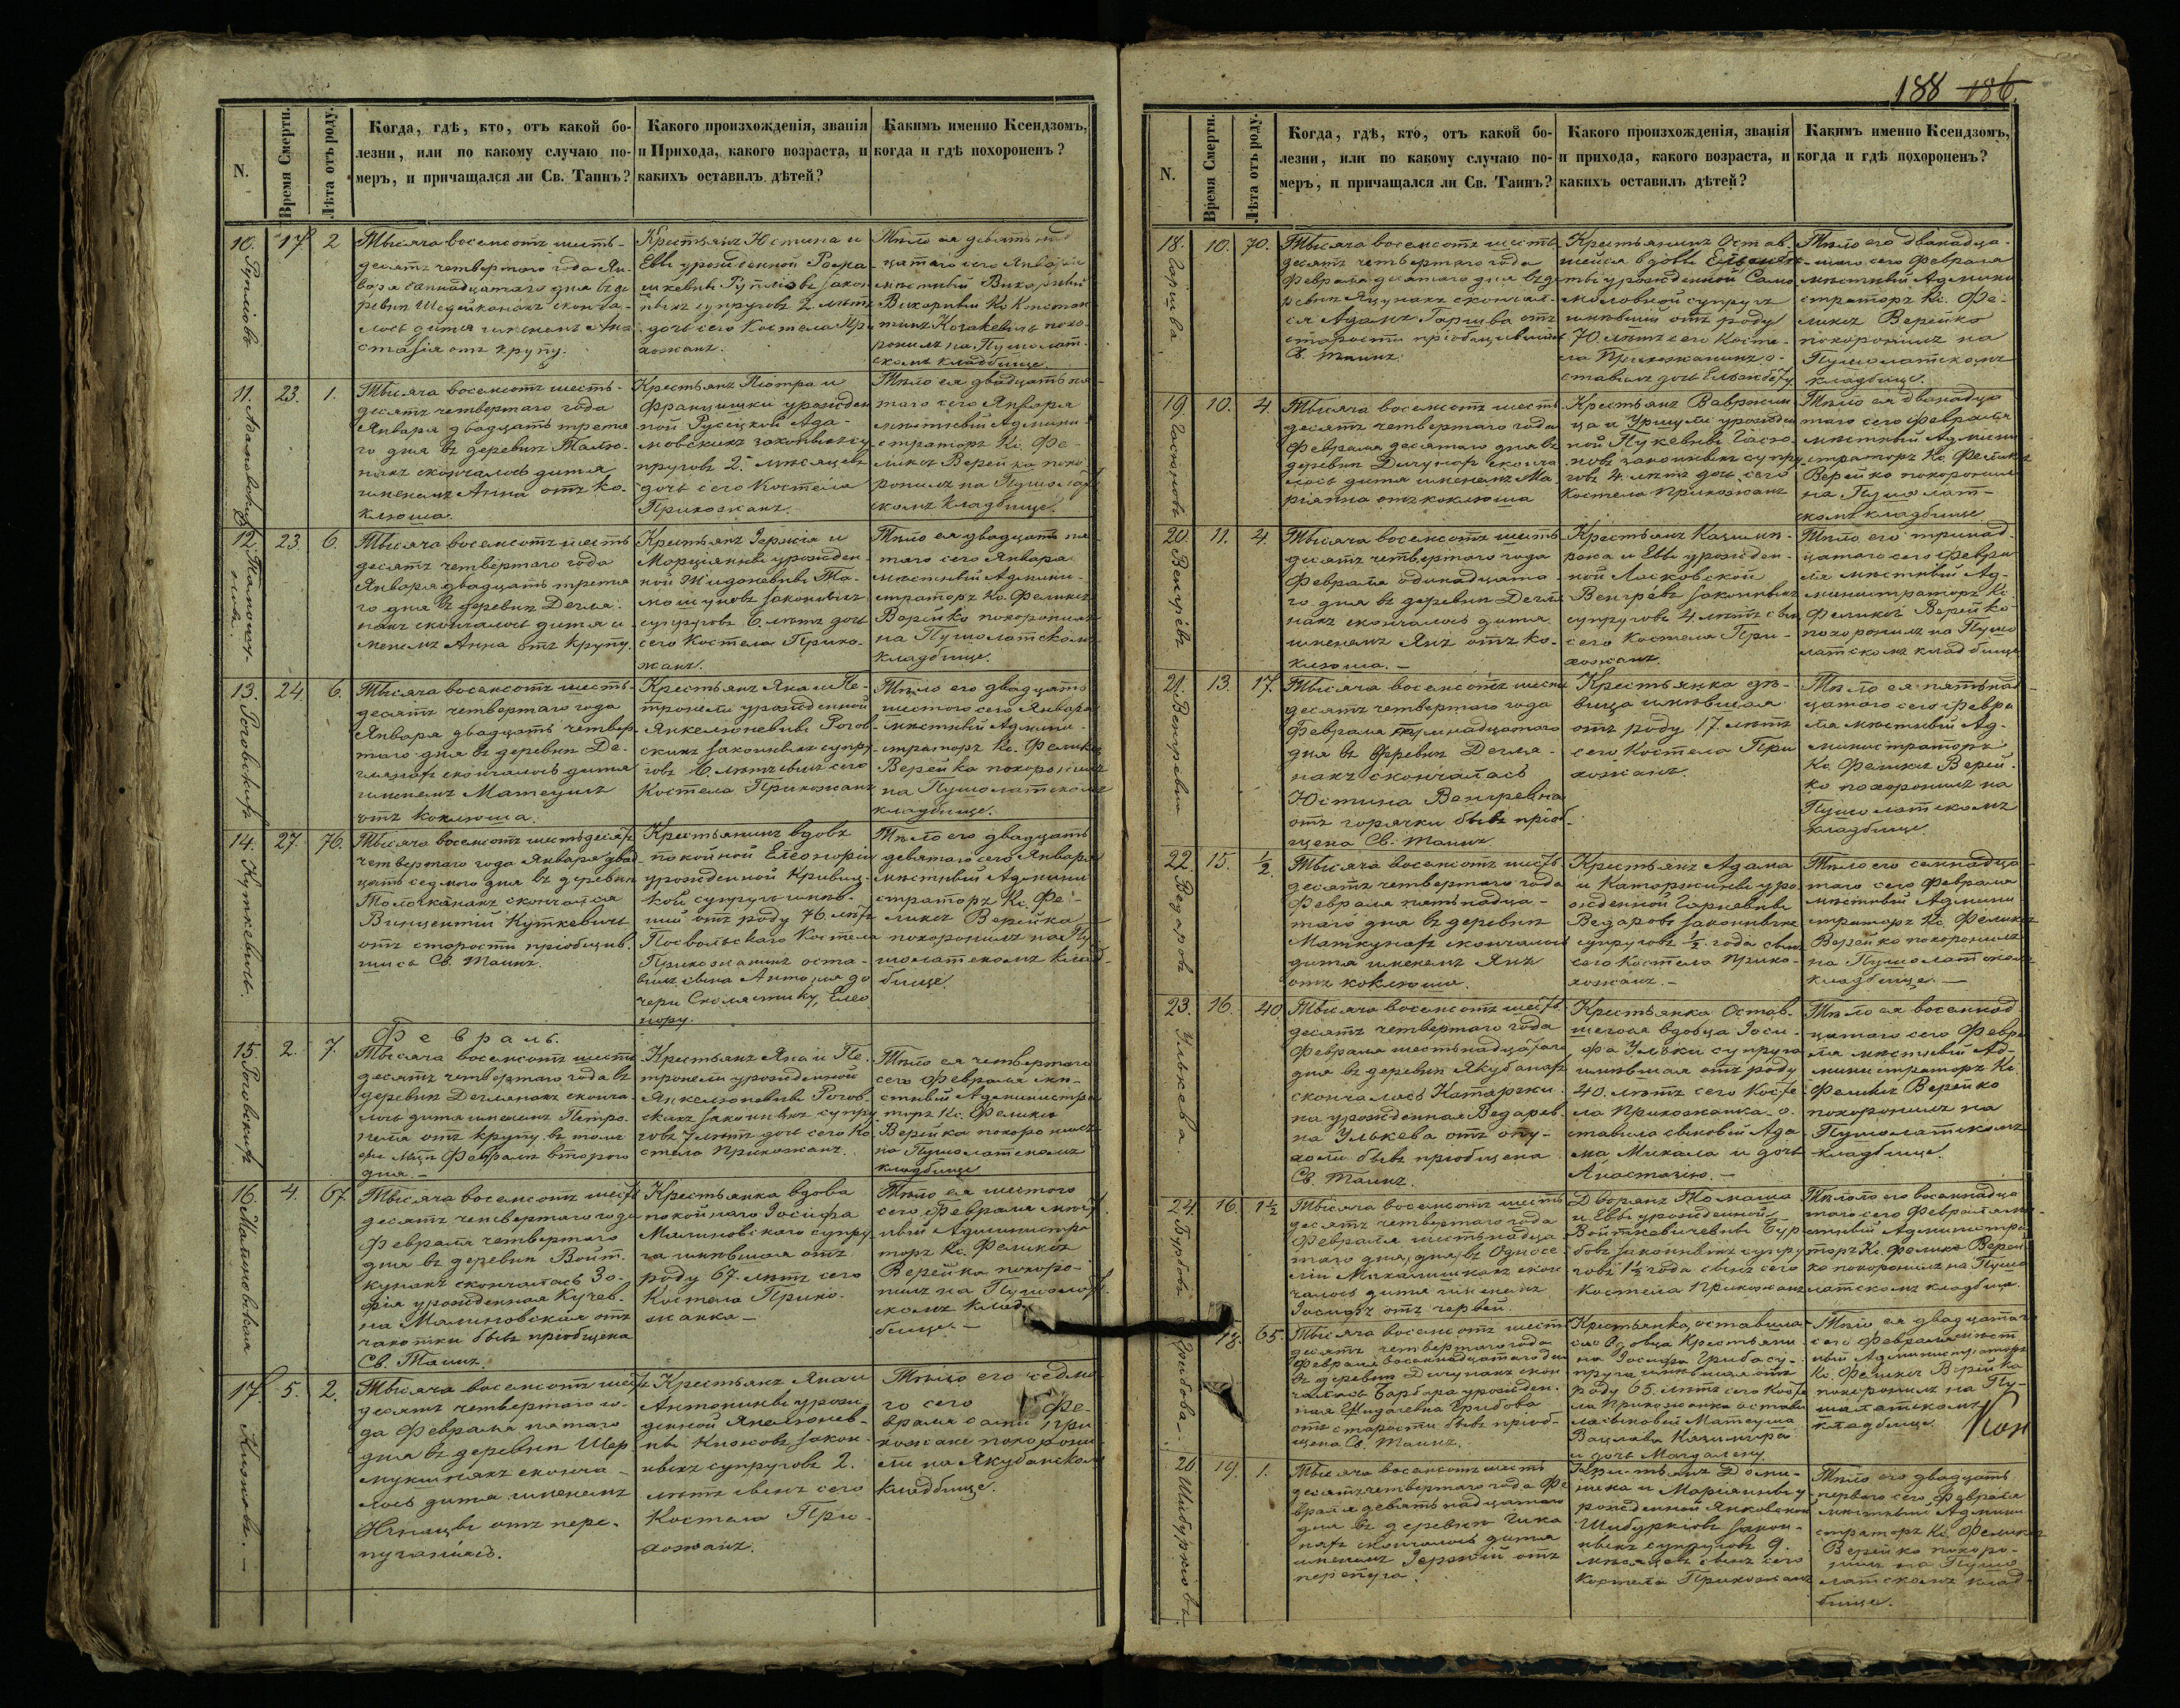 188 186
N.
Время Смерти.
Лѣта отъ роду.
Когда, гдѣ, кто, отъ какой бо-
лезни, или по какому случаю по-
меръ, и причащался ли Св. Таинъ?
Какого произхожденія, званія
и Прихода, какого возраста, и
какихъ оставилъ дѣтей?
Какимъ именно Ксендзомъ,
когда и гдѣ похороненъ?
10. 17. 2
Тысяча восемсотъ шесть-
десятъ четвертаго года Ян-
варя
дня въ де
ревни
лось дитя именемъ Ана
стазія отъ крупу.
Крестьянъ Юстина и
Евы урожденной
супруговъ 2. лѣтъ
дочь сего Костела При
хожанъ.
цатаго сего Января
мѣстный Викарный
на Пушолат-
скомъ кладбище.
11. 23. 1.
Тысяча восемсотъ шесть-
десятъ четвертаго года
Января двадцать третья
го дня въ деревни
нахъ скончалось дитя
именемъ Анна отъ ко-
клюша.
Крестьянъ Піотра и
Францишки урожден
ной Ада-
мовскихъ законныхъ су
пруговъ 2. мѣсяцевъ
дочь сего Костела
Прихожанъ.
Тѣло ея двадцать пя
таго сего Января
мѣстный Админи-
страторъ Кс. Фе-
ликсъ Верейко похо
ронилъ на Пушолат
скомъ Кладбище.
12. 23. 6.
Тысяча восемсотъ шесть
десятъ четвертаго года
Января двадцать третья
го дня въ деревни Дегля-
нахъ скончалось дитя и
менемъ Анна отъ крупу.
Крестьянъ Іержія и
Марціянны урожден
ной
законныхъ
супруговъ 6. лѣтъ дочь
сего Костела Прихо-
жанъ.
Тѣло ея двадцать пя
таго сего Января
мѣстный Админи-
страторъ Кс. Феликсъ
Верейко похоронилъ
на Пушолатскомъ
кладбище.
13. Роговскихъ 24. 6.
Тысяча восемсотъ шесть-
десятъ четвертаго года
Января двадцать четвер
таго дня въ деревни Де-
глянахъ скончалось дитя
именемъ Матеушъ
отъ коклюша.
Крестьянъ Яна и Пе-
тронели урожденной
Янкелюневны Рогов-
скихъ законныхъ супру
говъ 6. лѣтъ сынъ сего
Костела Прихожанъ
Тѣло его двадцать
шестого сего Января
мѣстный Админи-
страторъ Кс. Феликсъ
Верейка похоронилъ
на Пушолатскомъ
кладбище.
14. Куткевичъ. 27. 76.
Тысяча восемсотъ шестьдесятъ
четвертаго года Января двад
цать седмого дня въ деревни
скончался
Винцентій Куткевичъ
отъ старости пріобщив
шись Св. Таинъ.
Крестьянинъ вдовъ
покойной Елеоноріи
урожденной Кривиц-
кой супругъ имѣв-
шій отъ роду 76 лѣтъ
Посвольскаго Костела
Прихожанинъ оста-
вилъ сына Антонія до
чери Сколястику, Елео
нору.
Тѣло его двадцать
девятаго сего Января
мѣстный Админи
страторъ Кс. Фе-
ликсъ Верейка
похоронилъ на Пу
шолатскомъ клад-
бище.
Февраль.
15. Роговскихъ 2. 7.
Тысяча восемсотъ шесть
десятъ четвертаго года въ
деревни Деглянахъ сконча
лось дитя именемъ Петро
неля отъ крупу въ томъ
же Мцѣ Февралѣ второго
дня.—
Крестьянъ Яна и Пе-
тронели урожденной
Янкелюневны Рогов-
скихъ законныхъ супру
говъ 7 лѣтъ дочь сего Ко
стела Прихожанъ.
Тѣло ея четвертаго
сего Февраля мѣ-
стный Администра
торъ Кс. Феликсъ
Верейка похоронилъ
на Пушолатскомъ
кладбище
16. Малиновская 4. 67.
Тысяча восемсотъ шесть
десятъ четвертаго года
Февраля четвертаго
дня въ деревни Войт-
кунахъ скончалась Зо-
фія урожденная Кучев-
на Малиновская отъ
чахотки бывъ пріобщена
Св. Таинъ.
Крестьянка вдова
покойнаго Іосифа
Малиновскаго супру
га имѣвшая отъ
роду 67. лѣтъ сего
Костела Прихо-
жанка—
Тѣло ея шестого
сего Февраля мѣст
ный Администра
торъ Кс. Феликсъ
Верейка похоро-
нилъ на Пушолат
скомъ Клад-
бище—
17. Княжовъ.— 5. 2.
Тысяча восемсотъ шесть
десятъ четвертаго го-
да Февраля пятаго
дня въ деревни Шер
сконча-
лось дитя именемъ
Игнацы отъ пере-
пуганія.
Крестьянъ Яна и
Антонины урож-
денной
ны закон-
ныхъ супруговъ 2.
лѣтъ сынъ сего
Костела При-
хожанъ.
Тѣло его седма-
го сего Фе-
враля сами при
хожане похорони
ли на Якубанскомъ
Кладбище.
N.
Время Смерти.
Лѣта отъ роду.
Когда, гдѣ, кто, отъ какой бо-
лезни, или по какому случаю по-
меръ, и причащался ли Св. Таинъ?
Какого произхожденія, званія
и прихода, какого возраста, и
какихъ оставилъ дѣтей?
Какимъ именно Ксендзомъ,
когда и гдѣ похороненъ?
18. 10. 70.
Тысяча восемсотъ шесть
десятъ четвертаго года
Февраля десятаго дня въ де
ревни Яцунахъ скончал-
ся Адамъ отъ
старости пріобщившись
Св. Таинъ.
Крестьянинъ Остав-
шейся вдовы Ельжбѣ
ты урожденной
супругъ
имѣвшій отъ роду
70 лѣтъ сего Косте-
ла Прихожанинъ о-
ставилъ дочь Ельжбѣту
Тѣло его двѣнадца-
таго сего Февраля
мѣстный Админи
страторъ Кс. Фе-
ликсъ Верейко
похоронилъ на
Пушолатскомъ
кладбище.
19. 10. 4.
Тысяча восемсотъ шесть
десятъ четвертаго года
Февраля десятаго дня въ
деревни сконча
лось дитя именемъ Ма
ріянна отъ коклюша
Крестьянъ Вавржин
ца и Уршули урожден
ной
законныхъ супру
говъ 4. лѣтъ дочь сего
Костела Прихожанъ
Тѣло ея двѣнадца
таго сего Февраля
мѣстный Админи
страторъ Кс. Феликсъ
Верейко похоронилъ
на Пушолат-
скомъ кладбище
20. Венгрёвъ 11. 4.
Тысяча восемсотъ шесть
десятъ четвертаго года
Февраля одинадцата
го дня въ деревни Дегля
нахъ скончалось дитя
именемъ Янъ отъ ко-
клюша.—
Крестьянъ Казими-
ржа и Евы урожден-
ной Ласковской
Венгрёвъ законныхъ
супруговъ 4. лѣтъ сынъ
сего Костела При-
хожанъ.
Тѣло его тринад-
цатаго сего Февра
ля мѣстный Ад-
министраторъ Кс.
Феликсъ Верейко
похоронилъ на Пушо
латскомъ кладбище
21. Венгревна 13. 17.
Тысяча восемсотъ шесть
десятъ четвертаго года
Февраля тринадцатаго
дня въ деревни Дегля-
нахъ скончалась
Юстина Венгревна
отъ горячки бывъ пріоб-
щена Св. Таинъ
Крестьянка дѣ-
вица имѣвшая
отъ роду 17. лѣтъ
сего Костела При
хожанъ.
Тѣло ея пятьнад
цатаго сего Февра
ля мѣстный Ад-
министраторъ
Кс. Феликсъ Верей-
ко похоронилъ на
Пушолатскомъ
кладбище.
22. Ведаровъ 15. ½.
Тысяча восемсотъ шесть
десятъ четвертаго года
Февраля пятьнадца-
таго дня въ деревни
Маткунахъ скончалось
дитя именемъ Янъ
отъ коклюша.
Крестьянъ Адама
и Катаржины уро
жденной
Ведаровъ законныхъ
супруговъ ½ года сынъ
сего Костела Прихо-
жанъ.—
Тѣло его семнадца
таго сего Февраля
мѣстный Админи
страторъ Кс. Феликсъ
Верейко похоронилъ
на Пушолатскомъ
кладбище.—
23. Улькева 16. 40
Тысяча восемсотъ шесть
десятъ четвертаго года
Февраля шестьнадцатаго
дня въ деревни Якубанахъ
скончалась Катаржи
на урожденная Ведарев-
на Улькева отъ опу-
холи бывъ пріобщена
Св. Таинъ.
Крестьянка Остав-
шегося вдовца Іоси-
фа Ульки супруга
имѣвшая отъ роду
40. лѣтъ сего Косте
ла Прихожанка о-
ставила сыновей Ада
ма Михала и дочь
Анастазію.—
Тѣло ея восемнад
цатаго сего Февра
ля мѣстный Ад-
министраторъ Кс.
Феликсъ Верейко
похоронилъ на
Пушолатскомъ
кладбище.
24. Бурбовъ 16. 1½
Тысяча восемсотъ шесть
десятъ четвертаго года
Февраля шестьнадца
таго дня, дня въ Односе-
ліи Михалишкахъ скон
чалось дитя именемъ
Іосифъ отъ червей.
Дворянъ Томаша
и Евы урожденной
Войткевичевны Бур
бовъ законныхъ супру
говъ 1½ года сынъ сего
Костела Прихожанъ
Тѣло его восемнадца
таго сего Февраля мѣ
стный Администра
торъ Кс. Феликсъ Верей
ко похоронилъ на Пушо
латскомъ кладбище.
Грибова. 18. 65.
Тысяча восемсотъ шесть
десятъ четвертаго года
Февраля восемнадцатаго дня
въ деревни скон
чалась Барбара урожден-
ная Грибова
отъ старости бывъ пріоб-
щена Св. Таинъ.
Крестьянка, оставила
вдовца Крестьяни
на Іосифа Гриба су-
пруга имѣвшая отъ
роду 65. лѣтъ сего Косте
ла Прихожанка остави
ла сыновей Матеуша
Вацлава Казимира
и дочь Магдалену.
Тѣло ея двадцатаго
сего Февраля мѣст
ный Администраторъ
Кс. Феликсъ Верейко
похоронилъ на Пу-
шолатскомъ
кладбище
26 19. 1.
Тысяча восемсотъ шесть
десятъ четвертаго года Фе
враля девятьнадцатаго
дня въ деревни Чика
нахъ скончалось дитя
именемъ Іержій отъ
перепуга.
Крестьянъ Доми-
ника и Маріянны у
рожденной Янковской
закон-
ныхъ супруговъ 9.
мѣсяцевъ сынъ сего
Костела Прихожанъ
Тѣло его двадцать
перваго сего Февраля
мѣстный Админи
страторъ Кс. Феликсъ
Верейко похоро-
нилъ на Пушо
латскомъ клад-
бище.